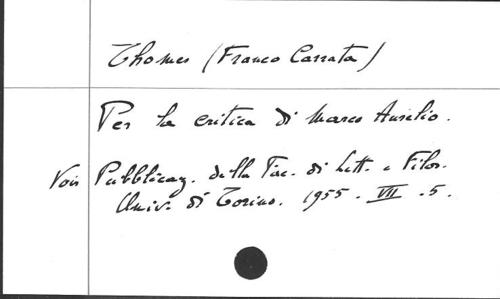 Thomes (Franco Carrata)
Per la critica di Marco Aurelio.
Voir Pubblicaz. della Fac. di Lett. e Filos.
Univ. di Torino. 1955. VII. 5.